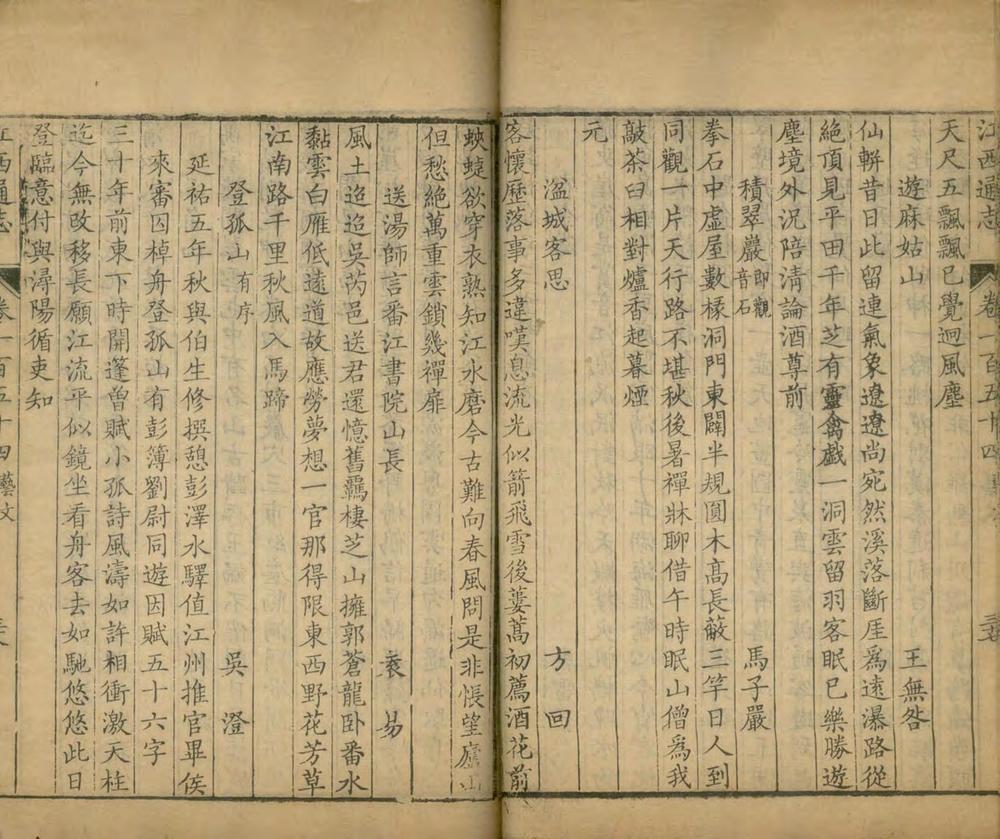 江西通志 卷一百五十四 藝文
天尺五飄飄已覺迥風塵
遊麻姑山 王無咎
仙輧昔日此留連氣象遼遼尚宛然溪落斷厓爲遠瀑路從
絶頂見平田千年芝有靈禽戯一洞雲留羽客眠已樂勝遊
塵境外況陪清論酒尊前
積翠巖即觀音石 馬子嚴
拳石中虛屋數椽洞門東闢半規圓木髙長蔽三竿日人到
同觀一片天行路不堪秋後暑禪牀聊借午時眠山僧爲我
敲茶臼相對爐香起暮煙
元
湓城客思 方回
客懷歷落事多違嘆息流光似箭飛雪後蔞蒿初薦酒花前
蛺蜨欲穿衣熟知江水磨今古難向春風問是非悵望廬山
但愁絶萬重雲鎖幾禪扉
送湯師言番江書院山長 袤易
風土迢迢吳芮邑送君還憶舊覊棲芝山擁郭蒼龍卧番水
黏雲白雁低逺道故應勞夢想一官那得限東西野花芳草
江南路千里秋風入馬蹄
登孤山有序 吳澄
延祐五年秋與伯生修撰憩彭澤水驛值江州推官畢侯
來審囚棹舟登孤山有彭簿劉尉同遊因賦五十六字
三十年前東下時開蓬曾賦小孤詩風濤如許相衝激天柱
迄今無攺移長願江流平似鏡坐看舟客去如馳悠悠此日
登臨意付與潯陽循吏知
江西通志 卷一百五十四 藝文